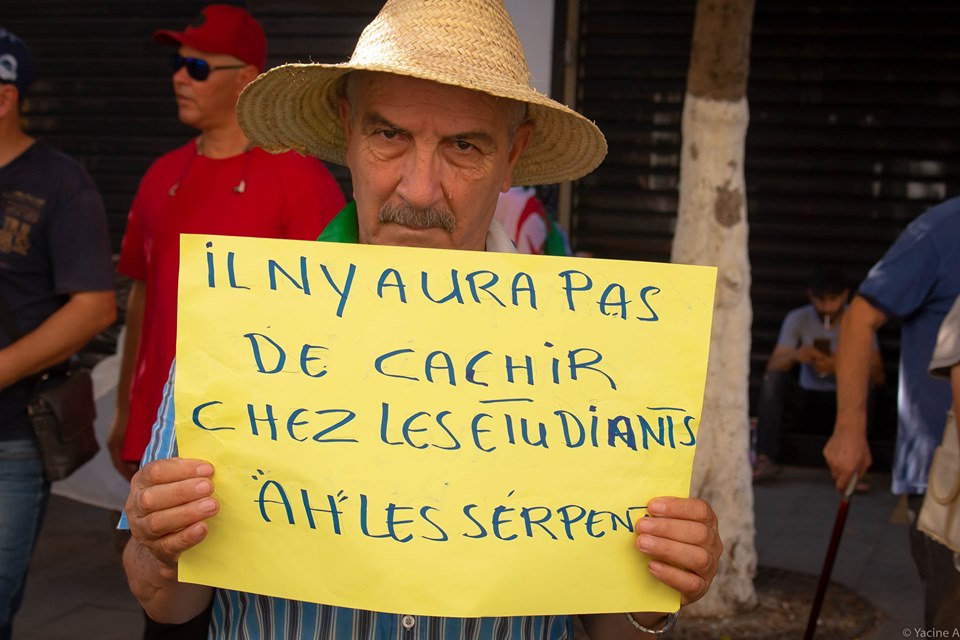 iL NY AURA PAS
DE CACHiR
CHEZ LES ETUDiANTS
"AH" LES SÉRPENT
© Yacine A